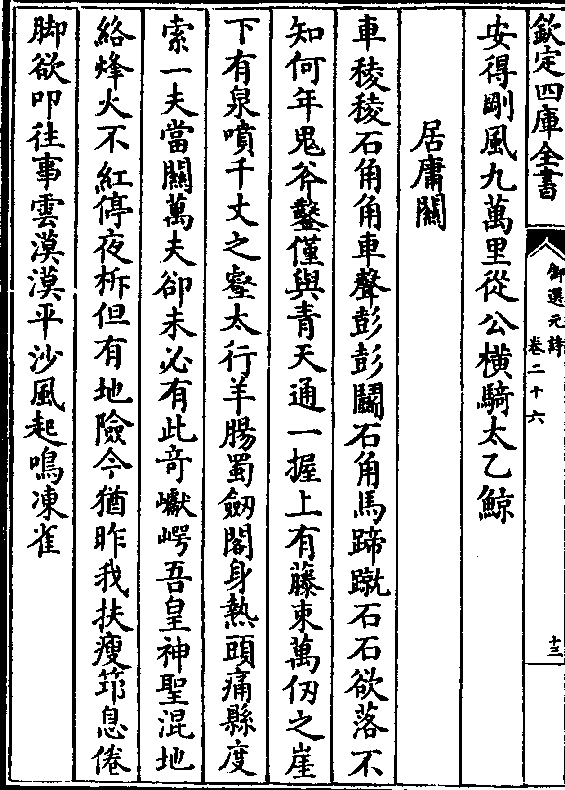 欽定四庫全書
御選元詩
卷二十六
十三
安得剛風九萬里從公橫騎太乙鯨
居庸關
車稜稜石角角車聲彭彭鬭石角馬蹄蹴石石欲落不
知何年鬼斧鑿僅與青天通一握上有藤束萬仞之崖
下有泉噴千丈之壑太行羊腸蜀劔閣身熱頭痛縣度
索一夫當關萬夫卻未必有此竒巘崿吾皇神聖混地
絡烽火不紅停夜柝但有地險今猶昨我扶瘦筇息倦
脚欲叩往事雲漠漠平沙風起鳴凍雀